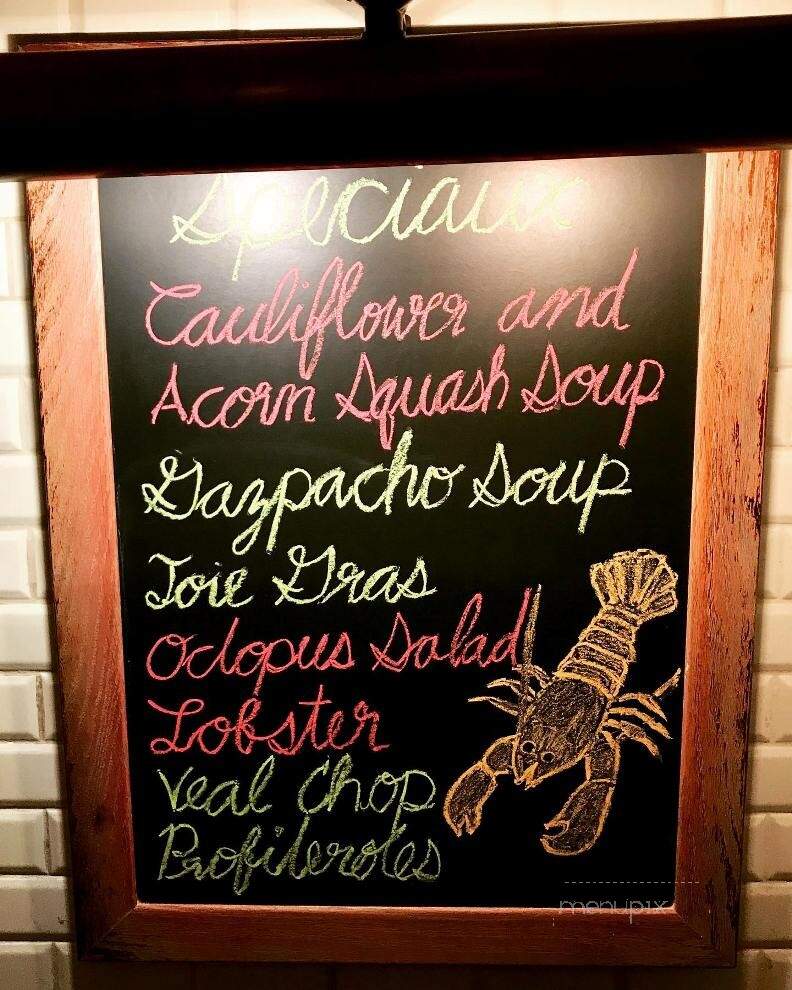 Speciaux
Cauliflower and
Acorn Squash Soup
Gazpacho Soup
Foie Gras
Octopus Salad
Lobster
Veal Chop
Profiteroles
menupix